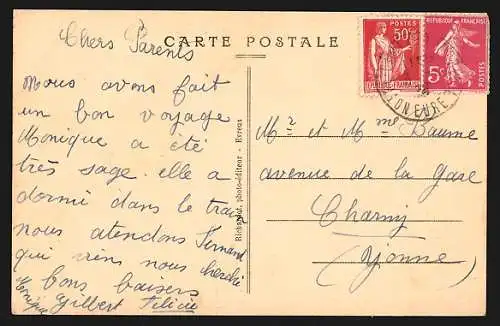 Chers Parents
CARTE POSTALE
Nous avons fait
un bon voyage
Monique a été
très sage. elle a
dormi dans le train
nous attendons Fernand
qui viens nous cherché
bons baisers
Monique Gilbert Félicie
photo-éditeur - Evreux
50c
POSTES
REPUBLIQUE FRANÇAISE
5c
POSTES
Mr et Mme Daume
avenue de la Gare
Charny
(Yonne)